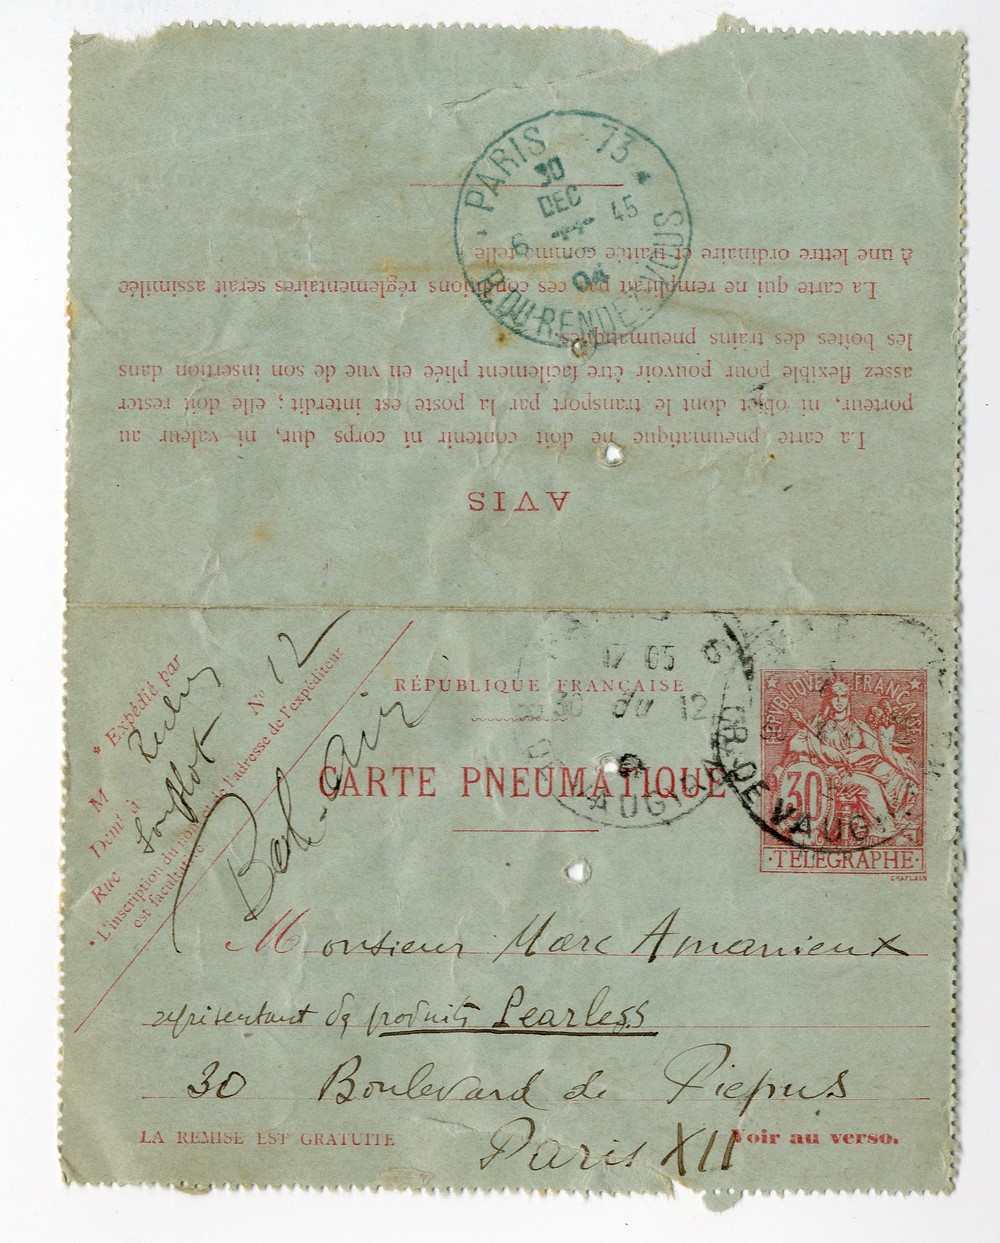 PARIS 73
30
DEC
6 45
04
R. DU RENDEZ-VOUS
à une lettre ordinaire et traitée comme telle.
La carte qui ne remplirait pas ces conditions réglementaires serait assimilée
les boîtes des trains pneumatiques.
assez flexible pour pouvoir être facilement pliée en vue de son insertion dans
porteur, ni objet dont le transport par la poste est interdit; elle doit rester
La carte pneumatique ne doit contenir ni corps dur, ni valeur au
AVIS
* Expédié par
M
Demt à
Rue Soufflot No 12
* L'inscription du nom et de l'adresse de l'expéditeur
est facultative.
17 05
30 du 12
RÉPUBLIQUE FRANÇAISE
CARTE PNEUMATIQUE
RÉPUBLIQUE FRANÇAISE
30
TÉLÉGRAPHE
CHAPLAIN
DE VAUGIR
Bel-air
Monsieur Marc Amanieux
représentant des produits Pearless
30 Boulevard de Picpus
LA REMISE EST GRATUITE
Voir au verso.
Paris XII